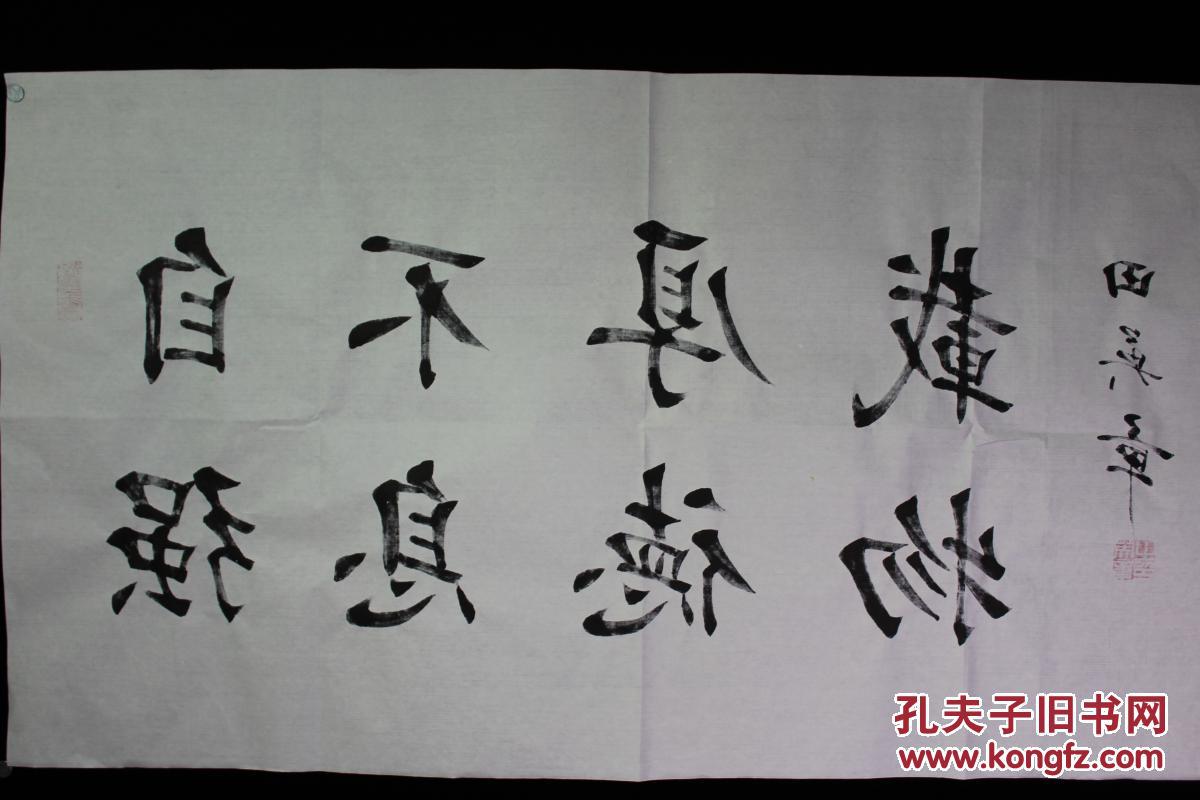 自强
不息
厚德
载物
田英章
孔夫子旧书网
www.kongfz.com